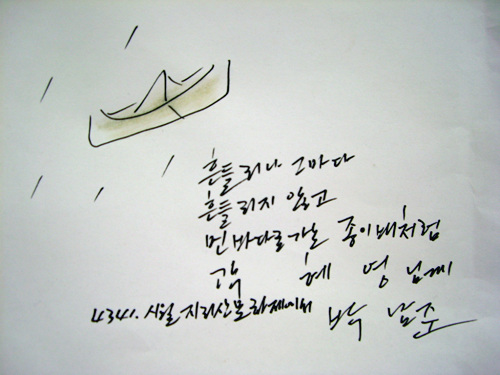 흔들리나 그마다
흔들리지 않고
먼바다로 가는 종이배처럼
혜 영 님께
4341. 시월 지리산문화제에서 박 남 준